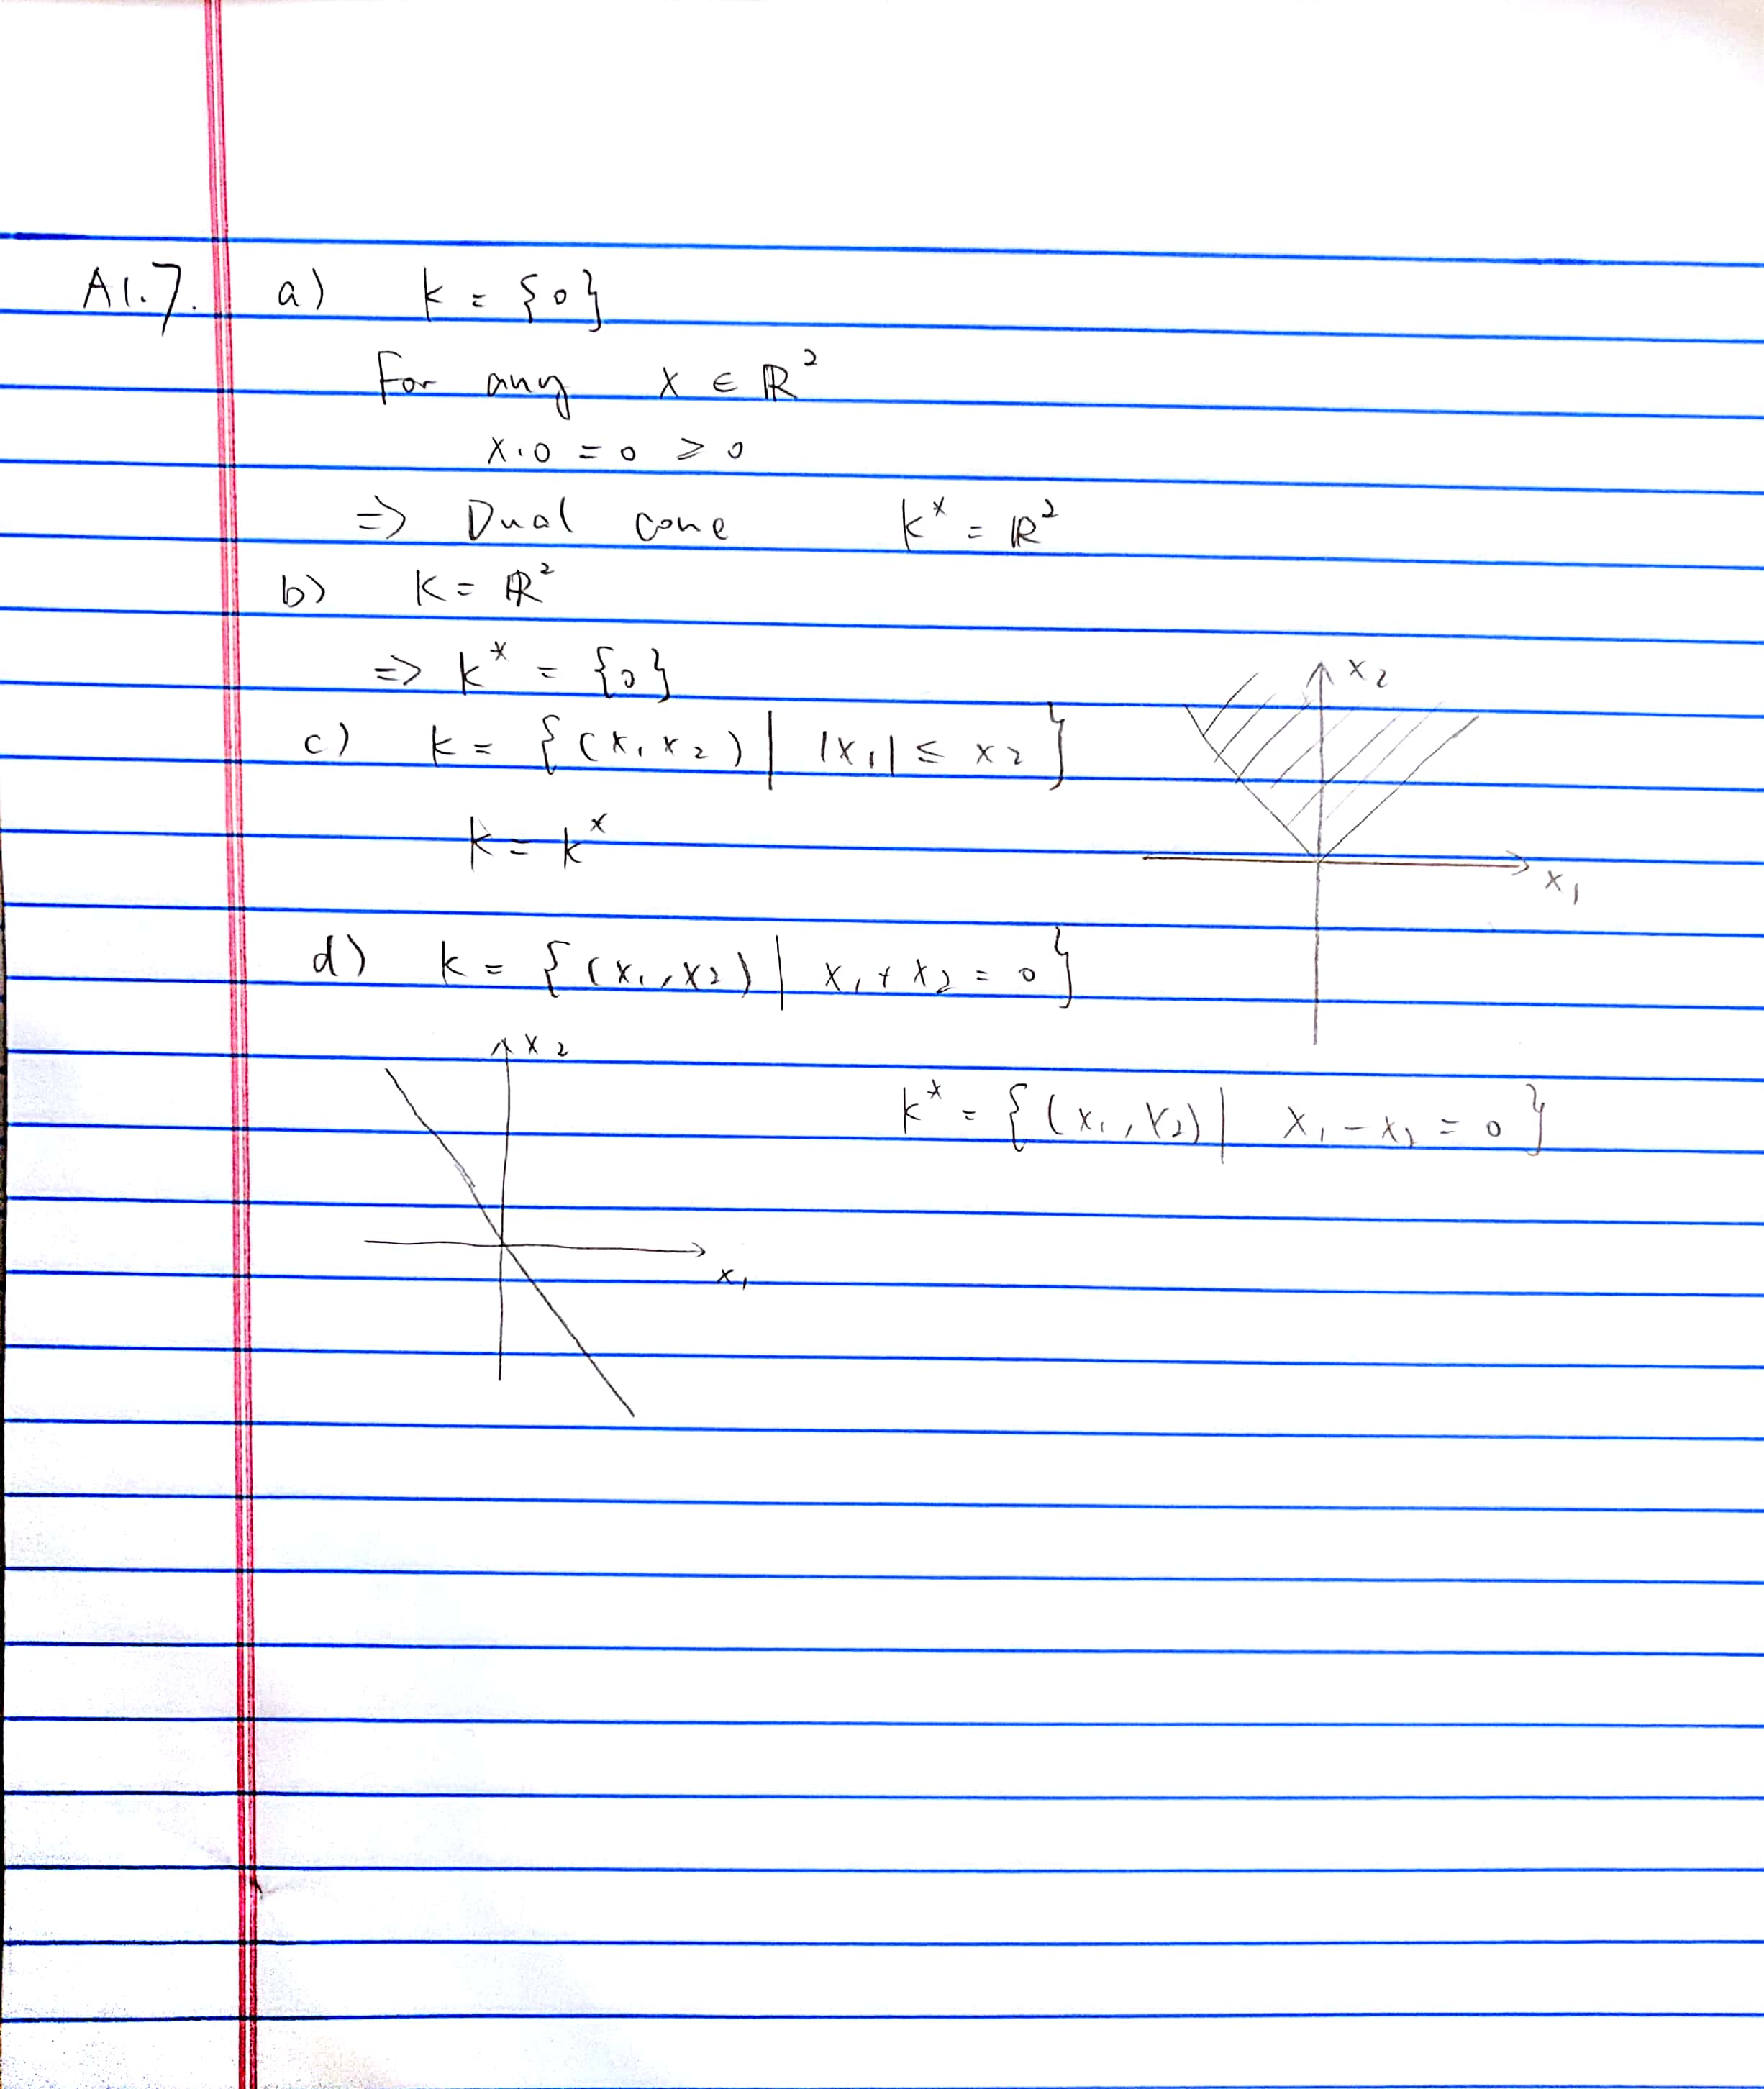 A1.7. a) K = {0}
For any x ∈ ℝ²
x·0 = 0 ≥ 0
⇒ Dual cone K* = ℝ²
b) K = ℝ²
⇒ K* = {0}
x₂
c) K = {(x₁ x₂) | |x₁| ≤ x₂}
K = K*
x₁
d) K = {(x₁, x₂) | x₁ + x₂ = 0}
x₂
K* = {(x₁, x₂) | x₁ - x₂ = 0}
x₁